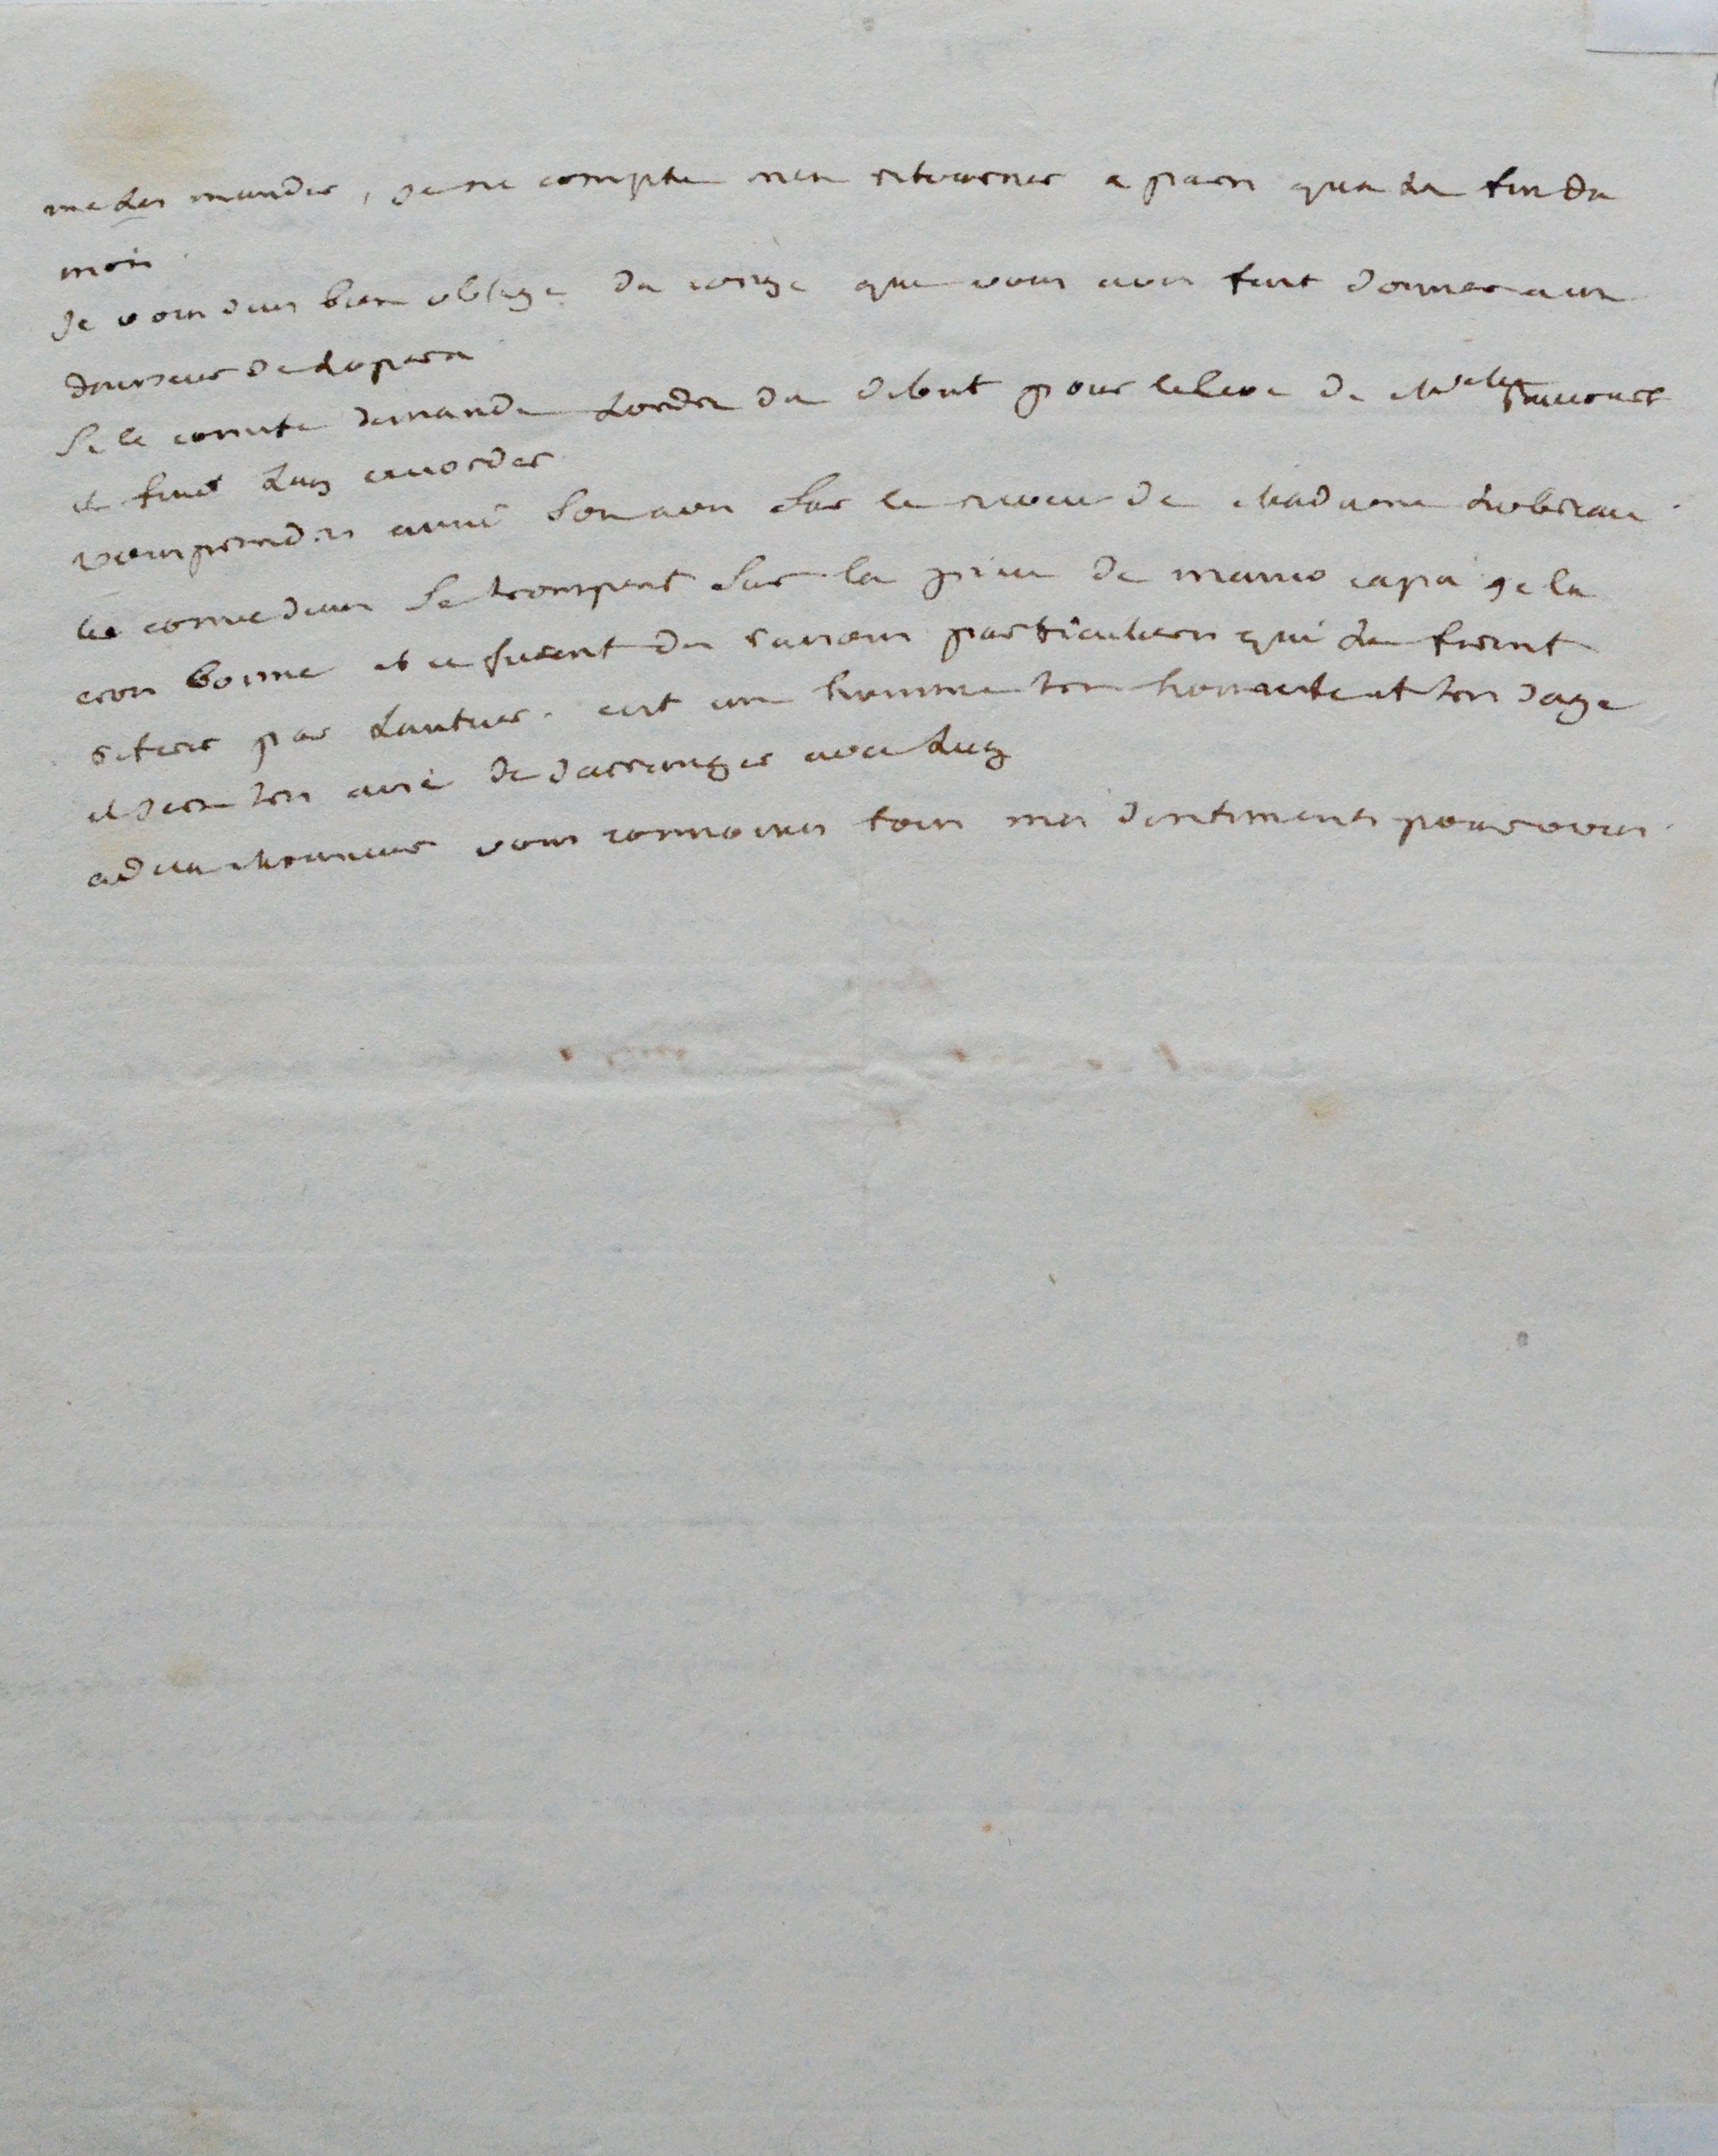 me les mander, je ne compte men retourner a paris qua la fin du
mois
Je vous suis bien oblige du conge que vous aves fait donner a un
danseur de Lopera
Si le comite demande Lordre du debut pour leleve de Md elle Raucourt
il faut Luy accorder
vous prendres aussi Son avis Sur le neveu de Madame
les comediens Se trompent Sur la piece de manco capa je la
crois bonne et ce furent des raisons particulieres qui la firent
retirer par Lauteur. cest un homme tres honneste et tres sage
il sera tres aisé de sarranger avec Luy
adieu Monsieur vous connoisses tous mes sentiments pour vous